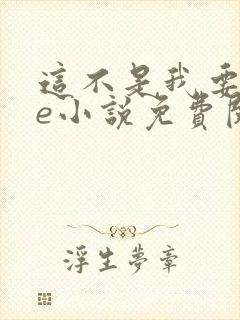 這不是我要
e小說免費閱
浮生夢章